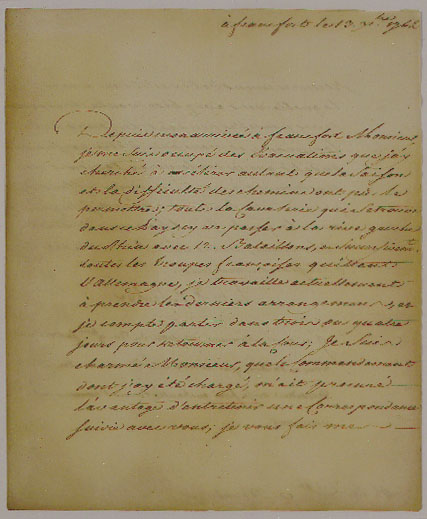 à francfort le 13. Xbre 1762
Depuis mon arrivée à francfort Monsieur,
je me suis occupé des Evacuations que j'ay
cherché à accelerer autant que la Saison
et la difficulté des chemins ont pu le
permettre; toute la Cavalerie qui se trouve
dans ce Pays cy va passer à la rive gauche
du Rhin avec 12. Bataillons,
toutes les troupes françoises quittant
l'allemagne, je travaille actuellement
à prendre les derniers arrangemens, et
je compte partir dans trois ou quatre
jours pour retourner à la Cour; Je suis
charmé Monsieur, que le Commandement
dont j'ay été chargé, m'ait procuré
l'avantage d'entretenir une Correspondance
suivie avec vous; je vous fais mes